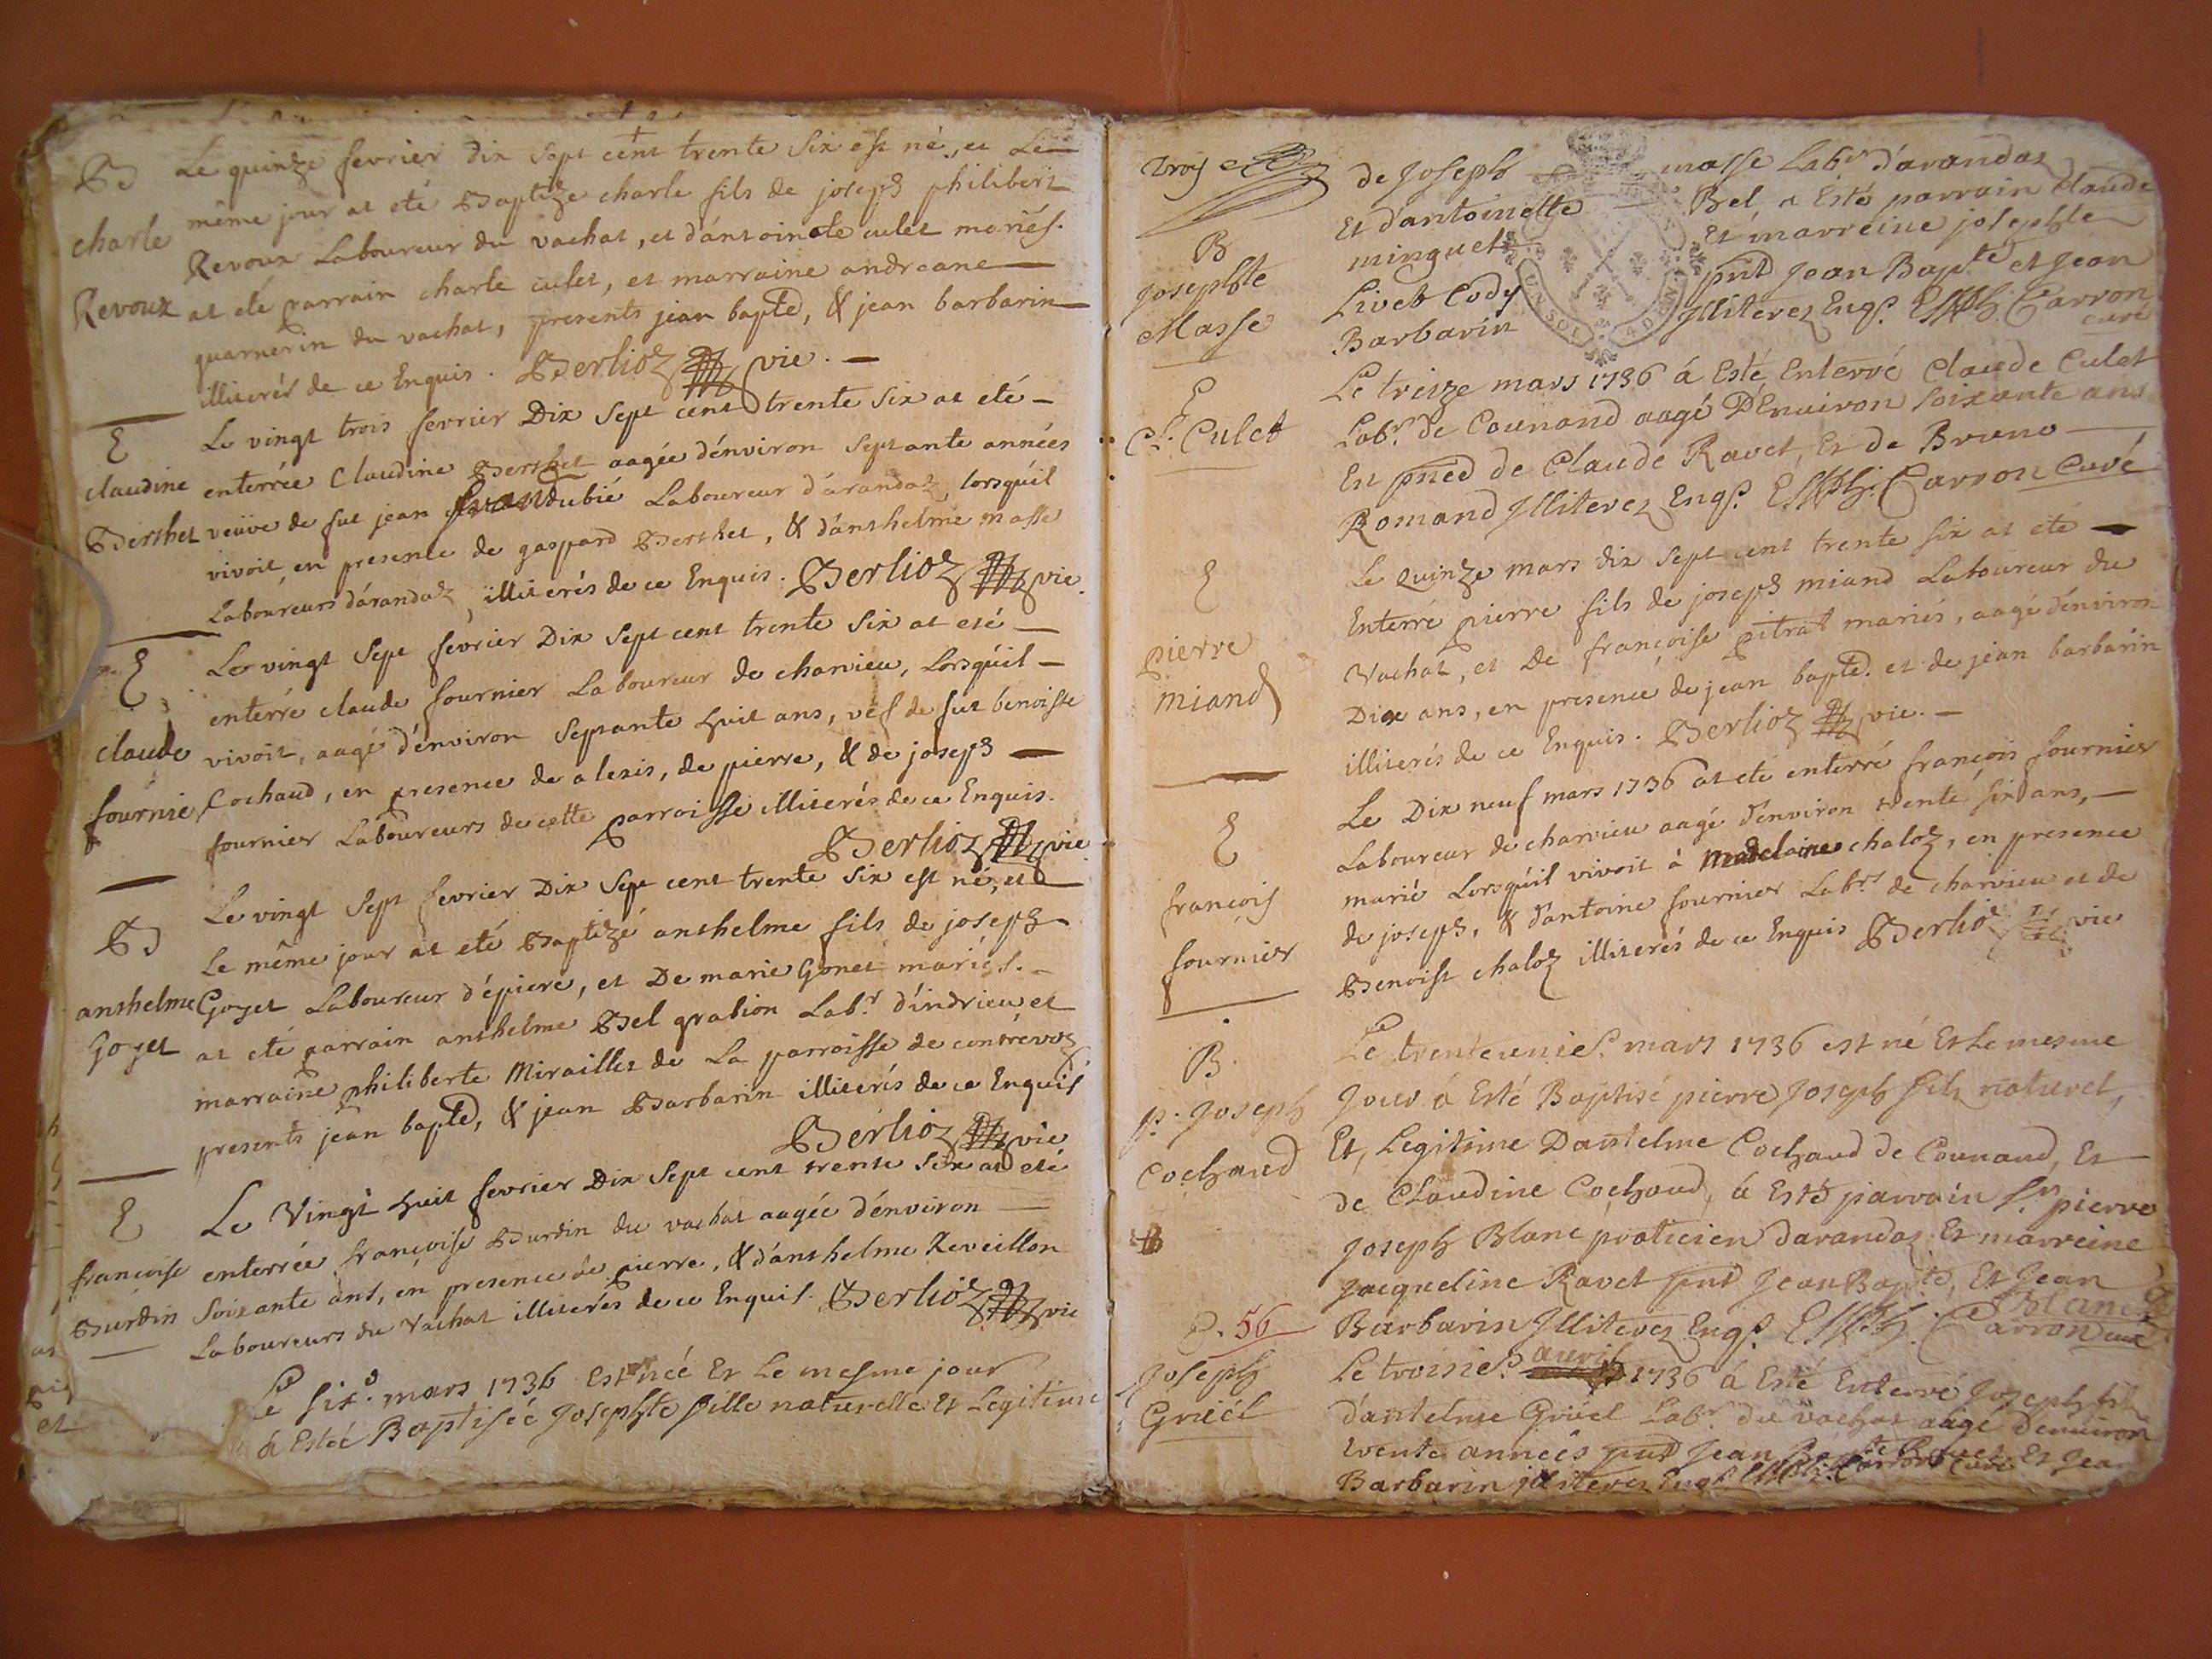 B Le quinze fevrier dix sept cent trente six est né, et Le
même jour at eté Baptizé charle fils de joseph philibert
charle
Revoux Laboureur du vachat, et d'antoinete culet mariés.
Revoux at eté parrain charle culet, et marraine andreane
guarnerin du vachat, presents jean bapte, & jean barbarin
illiterés de ce Enquis. Berlioz vic.
E Le vingt trois fevrier Dix sept cent trente six at eté
claudine enterrée Claudine Berthet aagée d'environ septante années
Berthet veüve de fut jean dubié Laboureur d'arandaz lorsqu'il
vivoit, en presence de gaspard Berthet, & d'anthelme masse
Laboureurs d'arandaz, illiterés de ce Enquis. Berlioz vic.
E Le vingt sept fevrier Dix sept cent trente six at eté
enterré claude fournier Laboureur de charvieu, Lorsqu'il
claude vivoit, aagé d'environ septante huit ans, vef de fut benoiste
fournier Cochaud, en presence de alexis, de pierre, & de joseph
fournier Laboureurs de cette parroisse illiterés de ce Enquis.
Berlioz vic
B Le vingt sept fevrier Dix sept cent trente six est né, et
Le même jour at eté Baptizé anthelme fils de joseph
anthelme Goyet Laboureur d'épiere, et De marie Gonet mariés.
Goyet at eté parrain anthelme Bel gration Labr. d'indrieu et
marraine philiberte Mirailler de La parroisse de contrevoz
presents jean bapte, & jean Barbarin illiterés de ce Enquis
Berlioz vic
E Le Vingt huit fevrier Dix sept cent trente six at eté
françoise enterrée françoise Burdin du vachat aagée d'environ
Burdin soixante ans, en presence de pierre, & d'anthelme Reveillon
Laboureurs du Vachat illiterés de ce Enquis. Berlioz vic
Le six. mars 1736 Est née Et Le mesme jour
à Esteé Baptisée Josephte fille naturelle Et Legitime
de Joseph masse Labr d'arandaz
Et d'antoinette Bel, a Esté parrain Claude
B minguet Et marreine josephte
Josephte Livet Cody pnts Jean Bapte et Jean
Masse Barbarin Illiterez Enqs. Carron
curé
UN SOL 4 DEN
E Le treize mars 1736 á Esté Enterré Claude Culet
Cl. Culet Labr. de Counand aagé D'Enuiron soixante ans
En pnce de Claude Ravet, Et de Bruno
Romand Illiterez Enqs. Carron Curé
E Le Quinze mars dix sept cent trente six at eté
Enterré pierre fils de joseph miand Laboureur du
pierre Vachat, et De françoise pitrat mariés, aagé d'environ
miand Dix ans, en presence de jean bapte. et de jean barbarin
illiterés de ce Enquis. Berlioz vic.
Le Dix neuf mars 1736 at eté enterré françois fournier
E Laboureur de charvieu aagé d'environ trente six ans,
marié Lorsqu'il vivoit à Madelaine chaloz, en presence
françois de joseph, & d'antoine fournier Labrs de charvieu et de
fournier Benoist chaloz illiterés de ce Enquis Berlioz vic
B. Le trenteunie. mars 1736 est né Et Le mesme
p. Joseph Jour á Esté Baptisé pierre Joseph fils naturel,
Cochaud Et, Legitime Dantelme Cochaud de Counand, Et
de Claudine Cochaud, á Esté parrain Sr. pierre
B Joseph Blanc praticien darandaz Et marreine
Jacqueline Ravet pnts Jean Bapte, Et Jean
Blanc
56 Barbarin Illiterez Enqs. Carron curé
Joseph Le troisie. auril 1736 á Esté Enterré Joseph fils
Gruel d'antelme Gruel Labr du vachat aagé denuiron
trente années pnts Jean Et Jean
Barbarin illiterez Enqs. Carron Curé